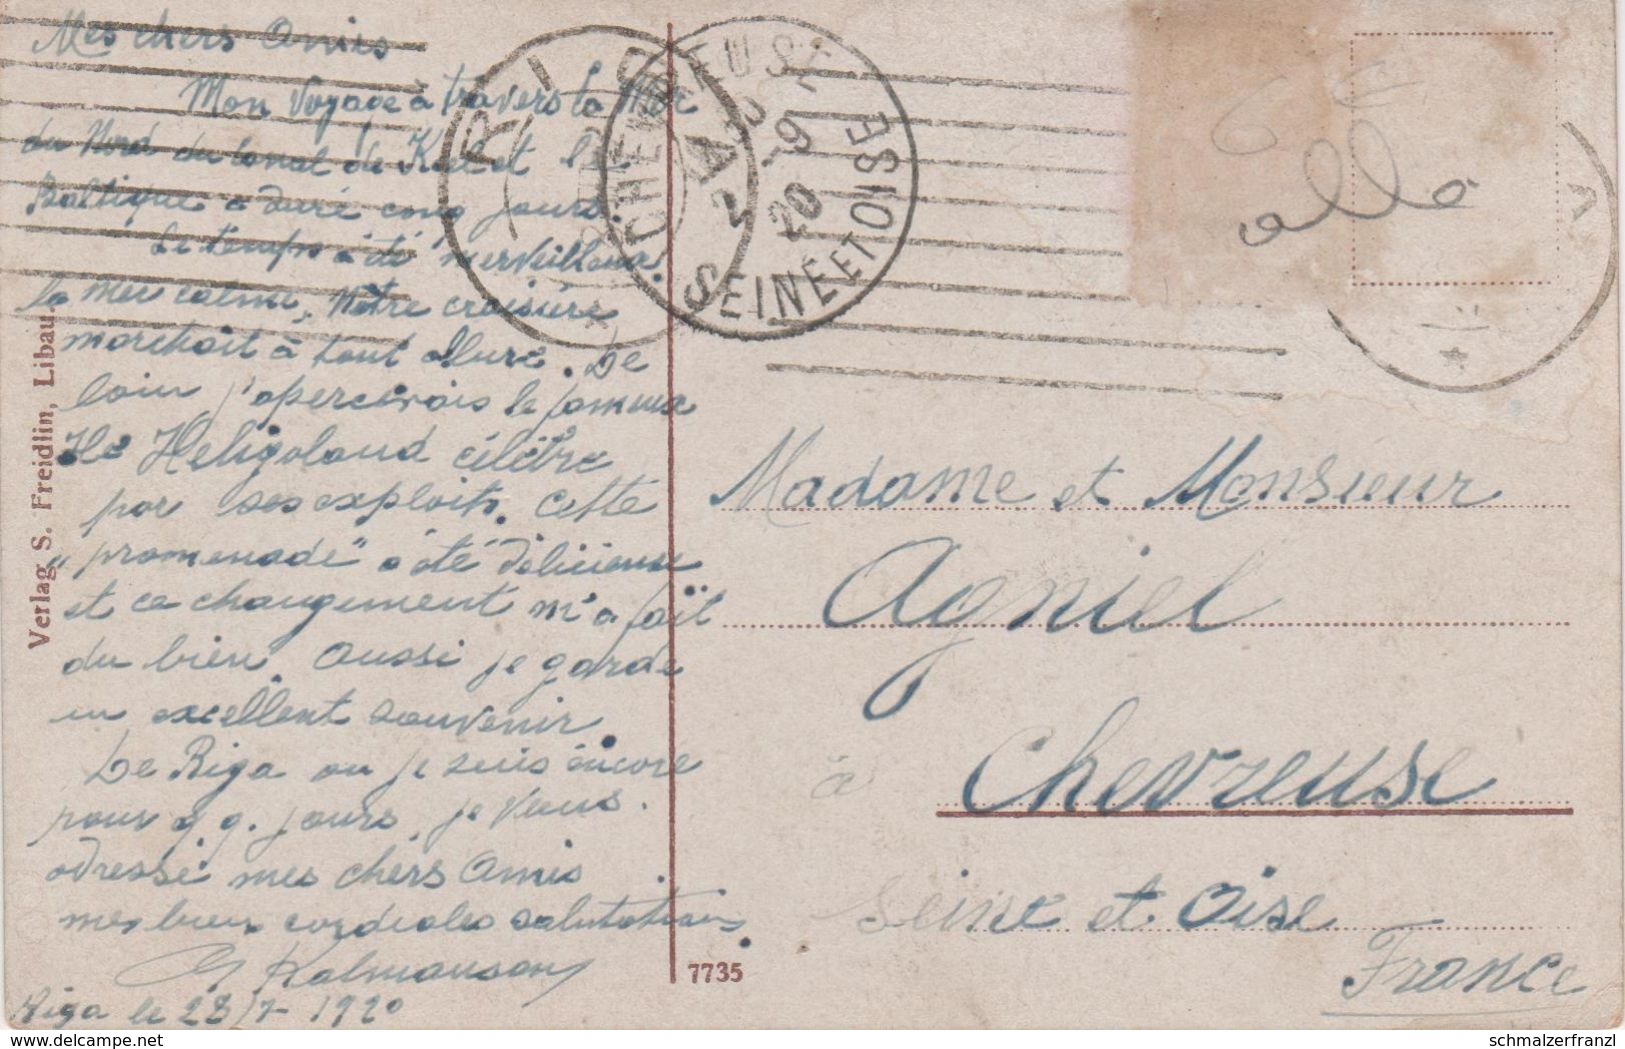 Mes chers Amis
Mon Voyage à travers la Mer
du Nord du Canal de Kiel et la
Baltique a duré cinq jours.
Le temps a été merveilleux
la mer calme, Notre croisière
marchait à tout allure. De
loin j'apercevais le fameux
Ile Heligoland célèbre
par ses exploits. Cette
"promenade" a été délicieuse
et ce changement m'a fait
du bien aussi je garde
un excellent souvenir
De Riga ou je suis encore
pour qq. jours, je vous
adresse mes chers Amis
mes bien cordiales salutations
Kalmanson
Riga le 23/7-1920
Verlag S. Freidlin, Libau.
7735
RI
CHEVREUSE
20
SEINE ET OISE
A
Madame et Monsieur
Agniel
à Chevreuse
Seine et Oise
France
www.delcampe.net
schmalzerfranzl